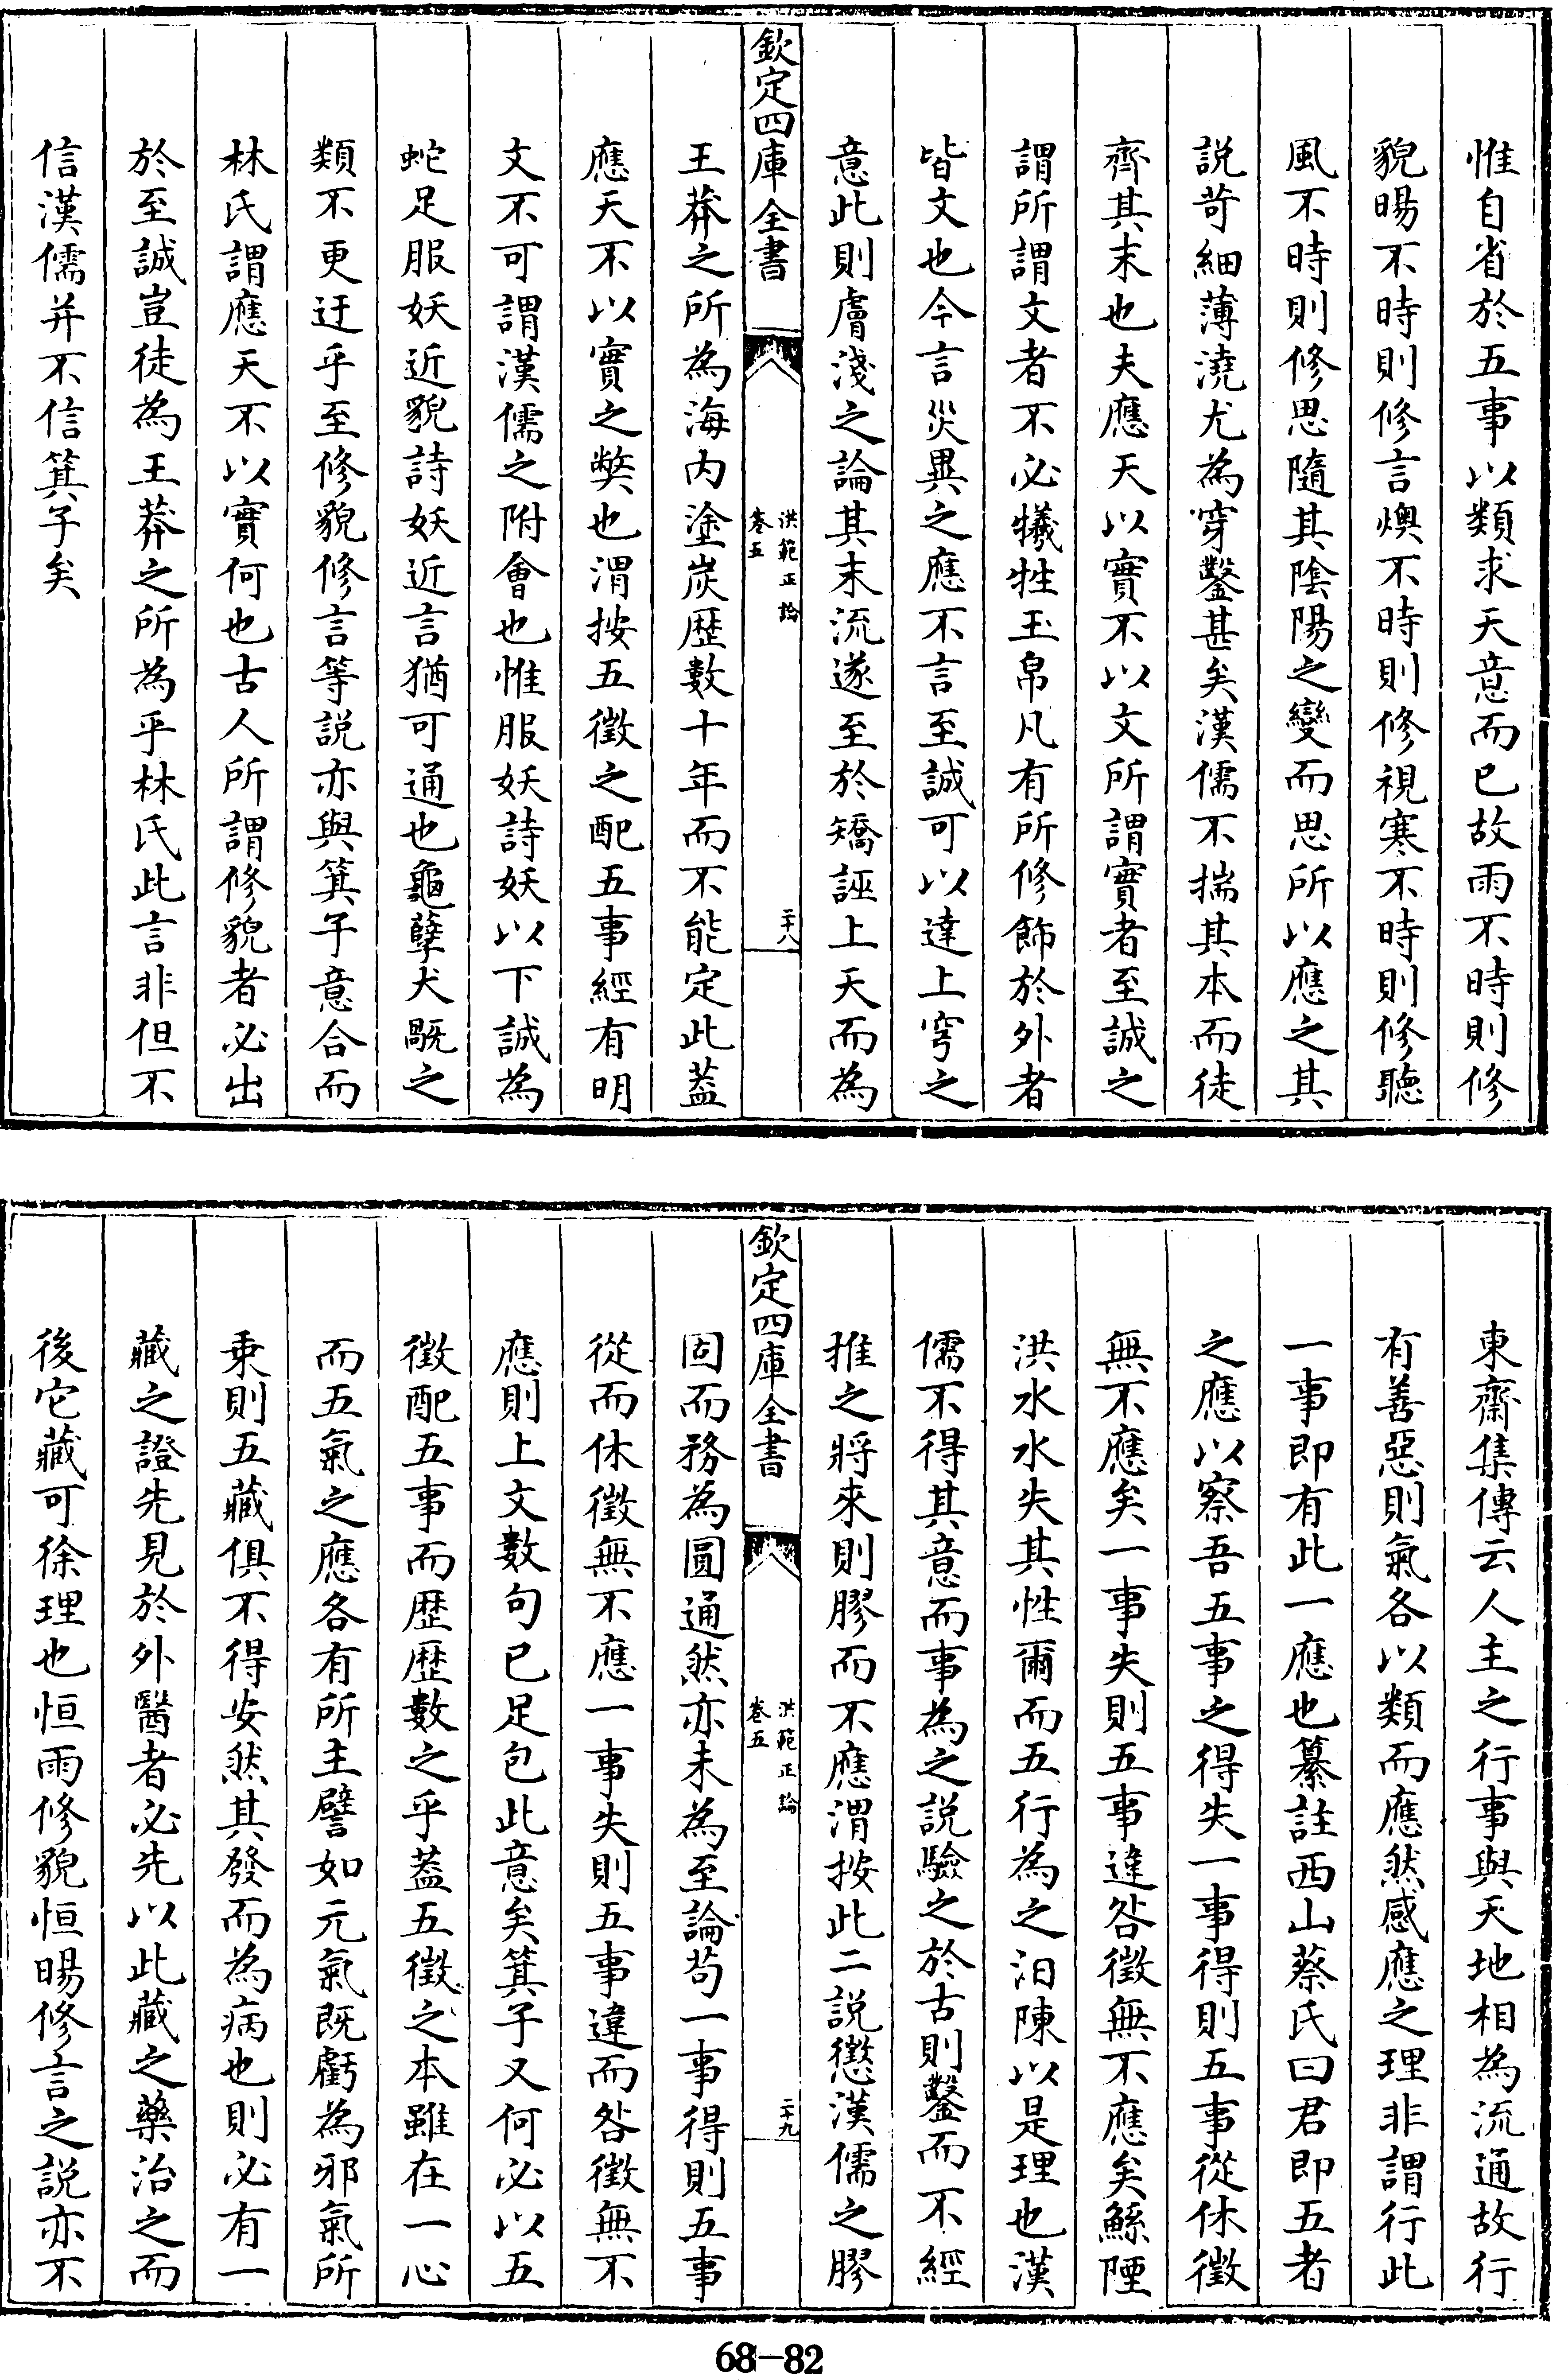 惟自省於五事以類求天意而已故雨不時則修
貌暘不時則修言燠不時則修視寒不時則修聽
風不時則修思隨其陰陽之變而思所以應之其
説苛細薄澆尤為穿鑿甚矣漢儒不揣其本而徒
齊其末也夫應天以實不以文所謂實者至誠之
謂所謂文者不必犧牲玉帛凡有所修飾於外者
皆文也今言災異之應不言至誠可以達上穹之
意此則膚淺之論其末流遂至於矯誣上天而為
欽定四庫全書
洪範正論
卷五
二十八
王莽之所為海内塗炭歴數十年而不能定此葢
應天不以實之獘也渭按五徴之配五事經有明
文不可謂漢儒之附會也惟服妖詩妖以下誠為
蛇足服妖近貌詩妖近言猶可通也龜孽犬旤之
類不更迂乎至修貌修言等説亦與箕子意合而
林氏謂應天不以實何也古人所謂修貌者必出
於至誠豈徒為王莽之所為乎林氏此言非但不
信漢儒并不信箕子矣
東齋集傳云人主之行事與天地相為流通故行
有善惡則氣各以類而應然感應之理非謂行此
一事即有此一應也纂註西山蔡氏曰君即五者
之應以察吾五事之得失一事得則五事從休徴
無不應矣一事失則五事違咎徴無不應矣鯀陻
洪水水失其性爾而五行為之汩陳以是理也漢
儒不得其意而事為之説驗之於古則鑿而不經
推之將來則膠而不應渭按此二説懲漢儒之膠
欽定四庫全書
洪範正論
卷五
二十九
固而務為圓通然亦未為至論茍一事得則五事
從而休徴無不應一事失則五事違而咎徴無不
應則上文數句已足包此意矣箕子又何必以五
徴配五事而歴歴數之乎葢五徴之本雖在一心
而五氣之應各有所主譬如元氣既虧為邪氣所
乗則五藏俱不得安然其發而為病也則必有一
藏之證先見於外醫者必先以此藏之藥治之而
後它藏可徐理也恒雨修貌恒暘修言之説亦不
68-82